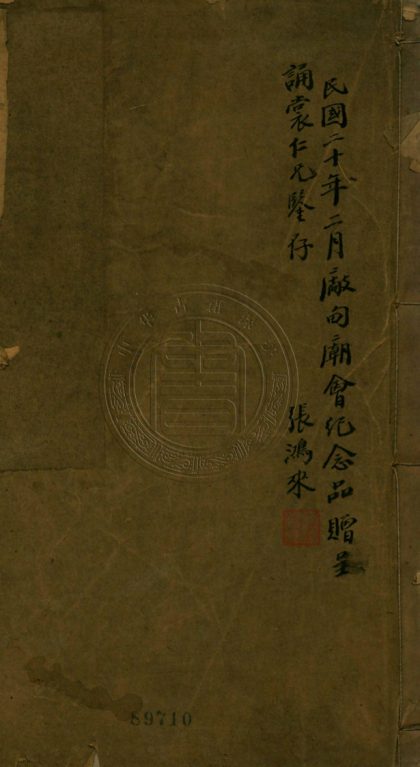 民國二十年二月廠甸廟會紀念品贈呈
誦裳仁兄鑒存
張鴻來
89710